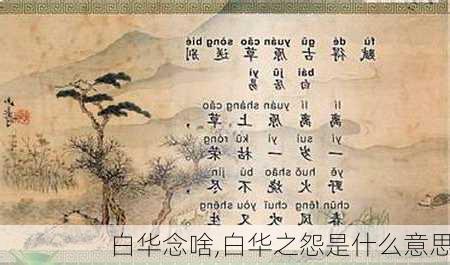 fù dé gǔ yuán cǎo sòng bié
赋得古原草送别
bái jū yì
白居易
lí lí yuán shàng cǎo
离离原上草
yí suì yì kū róng
一岁一枯荣
yě huǒ shāo bú jìn
野火烧不尽
chūn fēng chuī yòu shēng
春风吹又生
白华念啥,白华之怨是什么意思